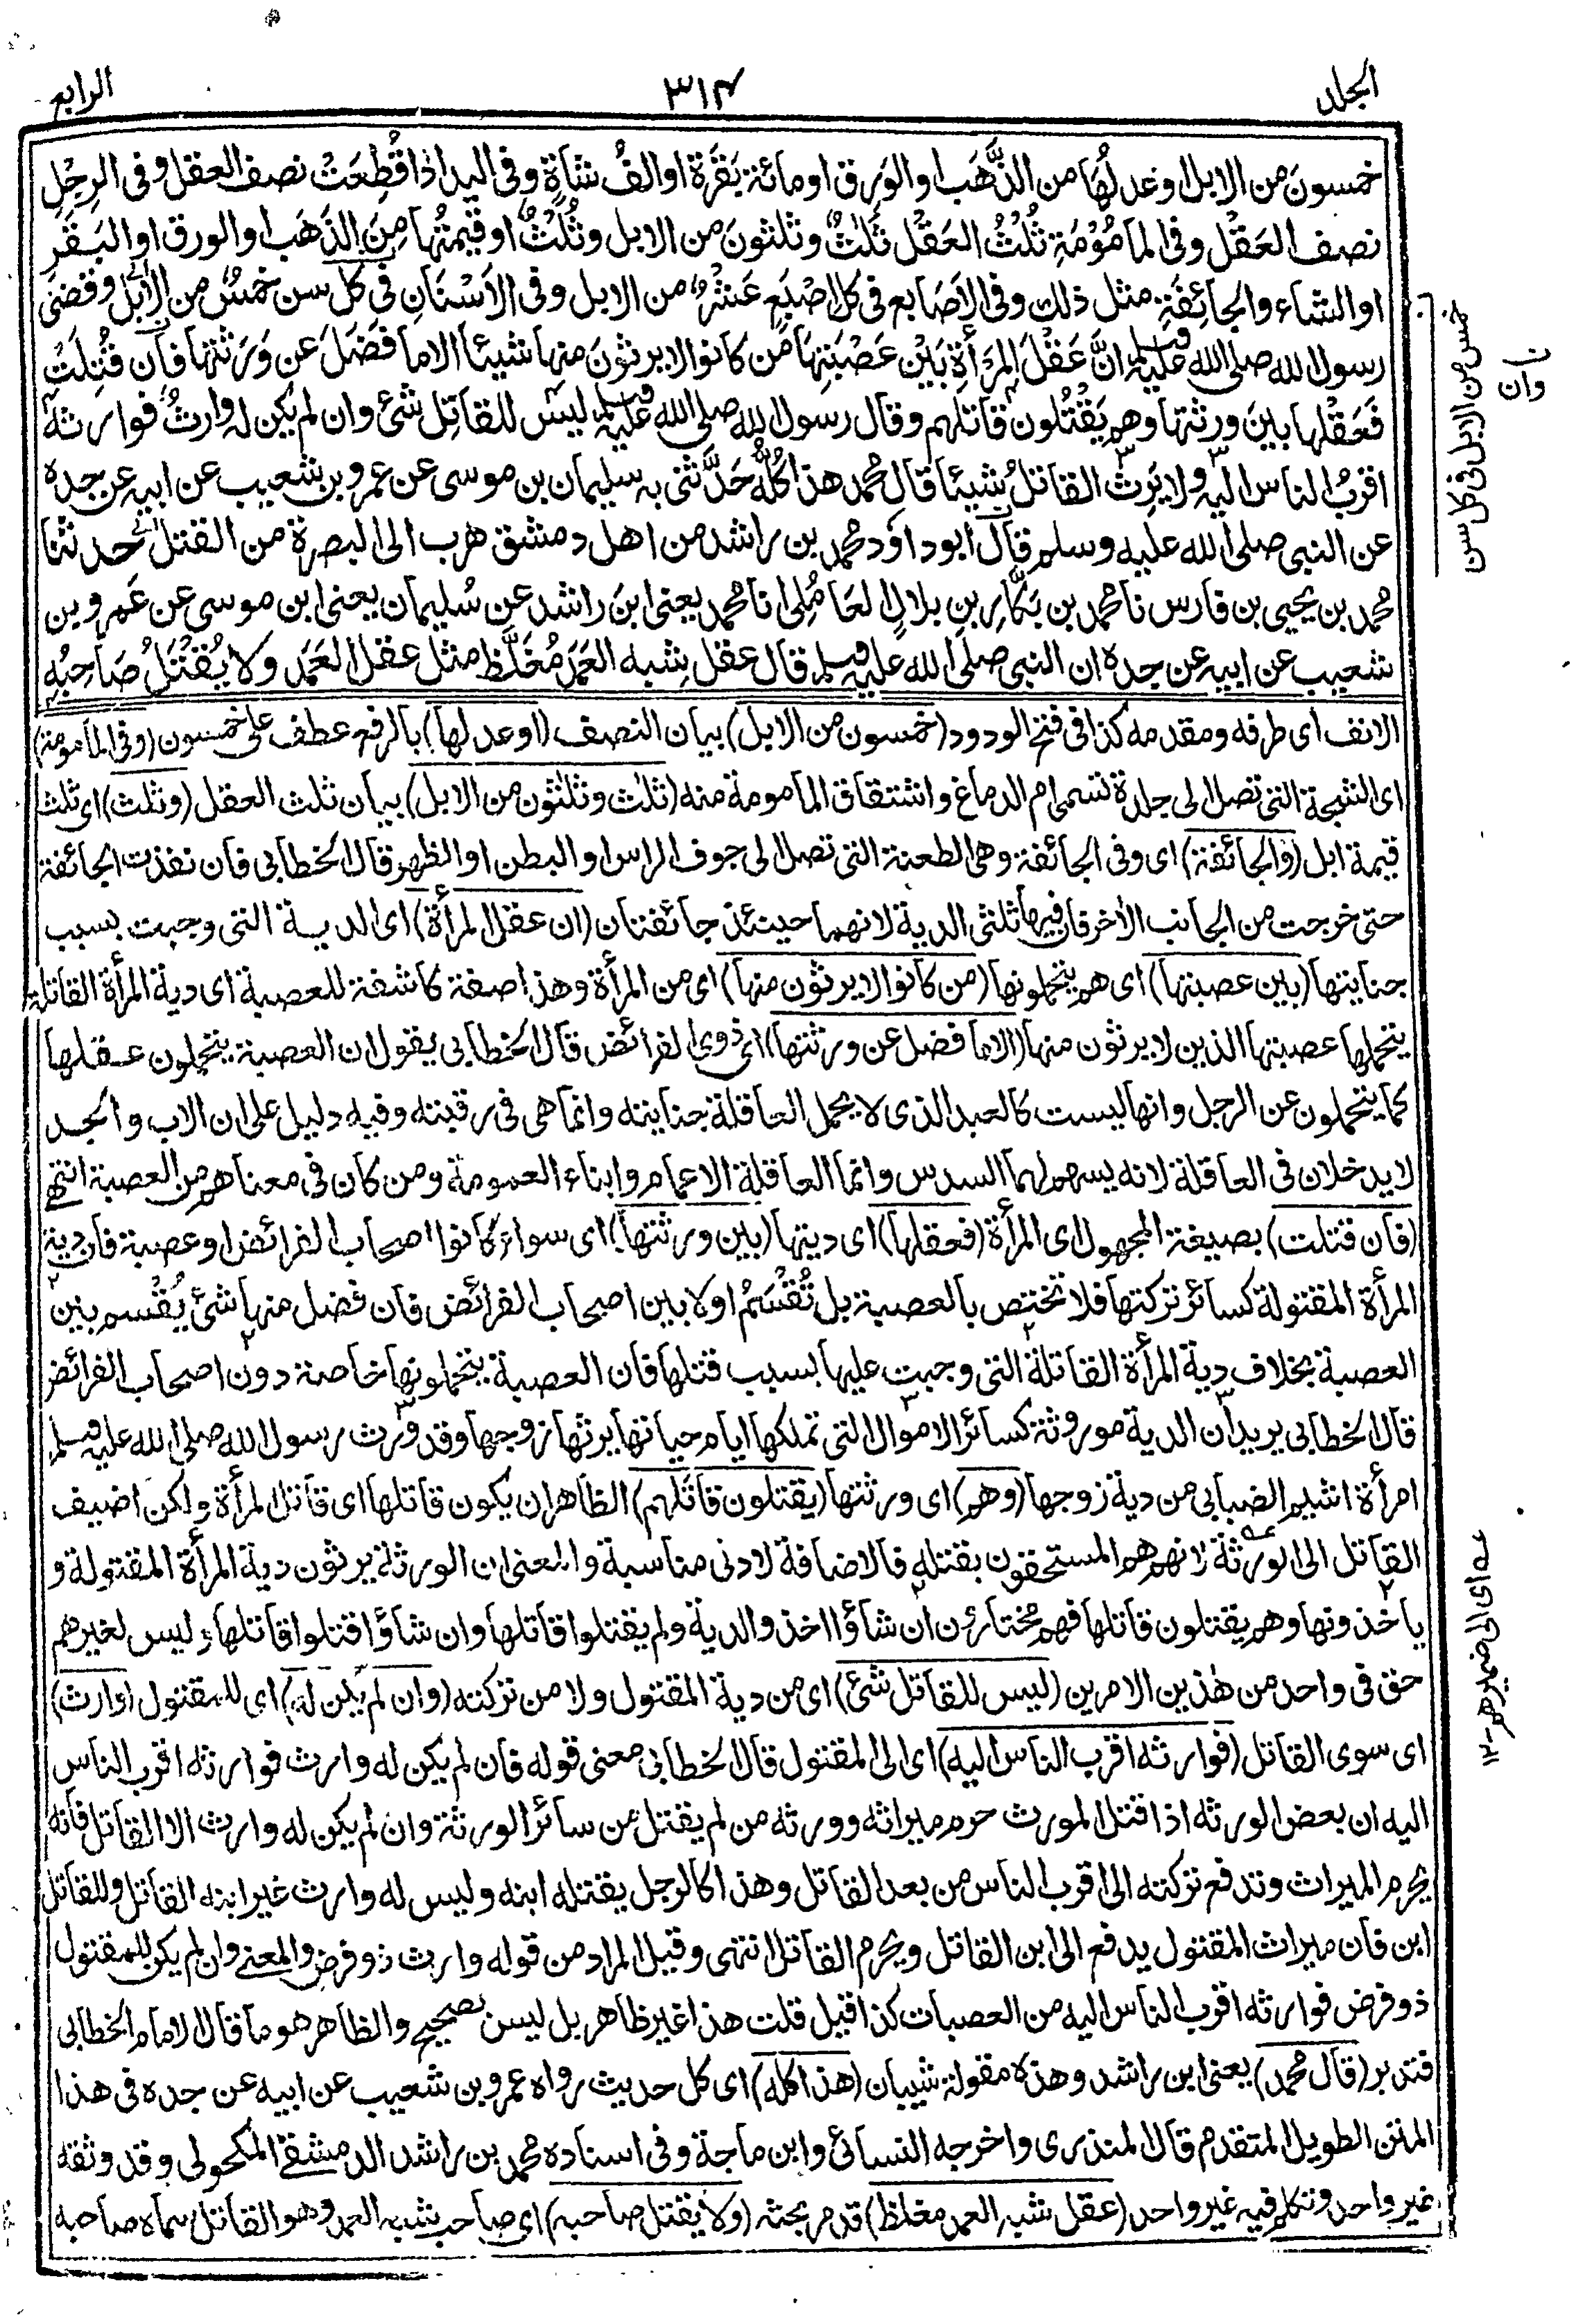 المجلد
٣١٤
الرابع
خمسونَ من الابل اوعدلُها من الذَّهَب او الوَرِق او مائة بَقَرة او الفُ شاةٍ وفى اليد اذا قُطِعَتْ نصف العقل وفى الرِجْلِ
نصف العَقْل وفى المامُوْمَةِ ثُلُثُ العَقْل ثَلٰثٌ وثلثونَ من الابل وثُلُثٌ او قيمتُها مِنَ الذَهَب او الورق او البَقَرِ
او الشاء والجائِفَةِ مثل ذلك وفى الاَصَابع فى كل اِصْبَعٍ عَشْرٌ من الابل وفى الاَسْنَانِ فى كل سن خمسٌ من الاِبِل وقضى
رسول الله صلى الله عليه وسلم انَّ عَقْلَ المَرْأةِ بَيْن عَصَبَتِهَا مَن كانوا لا يرثونَ منها شيئا الا ما فَضَلَ عن وَرَثتها فان قُتِلَتْ
فَعَقْلها بينَ ورثتها وهم يَقْتُلون قاتلهم وقال رسول الله صلى الله عليه وسلم ليس للقاتِل شئ وان لم يكن له وارثٌ فوارثه
اقربُ الناس اليه ولا يَرِث القاتلُ شيئا قال محمد هذا كُلُّه حَدَّثنى به سليمان بن موسى عن عمرو بن شعيب عن ابيه عن جده
عن النبى صلى الله عليه وسلم قال ابو داود محمد بن راشد من اهل دمشق هرب الى البصرة من القتل حدثنا
محمد بن يحيى بن فارس نا محمد بن بَكَّارِ بنِ بلالٍ العَامُلِى انا محمد يعنى ابنَ راشد عن سُليمان يعنى ابن موسى عن عَمرو بن
شعيب عن ابيه عن جده ان النبى صلى الله عليه وسلم قال عقل شِبه العَمَد مُغَلَّظ مثل عقل العَمَد ولا يُقْتَلُ صَاحِبُه
الانف اى طرفه ومقدمه كذا فى فتح الودود (خمسون من الابل) بيان النصف (اوعدلها) بالرفع عطف على خمسون (وفى المامومة)
اى الشجة التى تصل الى جلدة تسمى ام الدماغ واشتقاق المامومة منه (ثلاث وثلثون من الابل) بيان ثلث العقل (وثلث) اى ثلث
قيمة ابل (والجائفة) اى وفى الجائفة وهى الطعنة التى تصل الى جوف الراس او البطن او الظهر قال الخطابى فان نفذت الجائفة
حتى خرجت من الجانب الاخر فان فيها ثلثى الدية لانهما حينئذ جائفتان (ان عقل المرأة) اى الدية التى وجبت بسبب
جنايتها (بين عصبتها) اى هم يتحملونها (من كانوا لا يرثون منها) اى من المرأة وهذا صفة كاشفة للعصبة اى دية المرأة القاتلة
يتحملها عصبتها الذين لا يرثون منها (الا ما فضل عن ورثتها) اى ذوى الفرائض قال الخطابى يقول ان العصبة يتحملون عقلها
كما يتحملون عن الرجل وانها ليست كالعبد الذى لا يحمل العاقلة جنايته وانما هى فى رقبته وفيه دليل على ان الاب والجد
لا يدخلان فى العاقلة لانه يسهم لهما السدس وانما العاقلة الاعمام وابناء العمومة ومن كان فى معناهم من العصبة انتهى
(فان قتلت) بصيغة المجهول اى المرأة (فعقلها) اى ديتها (بين ورثتها) اى سواء كانوا اصحاب الفرائض او عصبة فان دية
المرأة المقتولة كسائر تركتها فلا تختص بالعصبة بل تُقْسَمُ اولا بين اصحاب الفرائض فان فضل منها شئ يُقْسم بين
العصبة بخلاف دية المرأة القاتلة التى وجبت عليها بسبب قتلها فان العصبة يتحملونها خاصة دون اصحاب الفرائض
قال الخطابى يريد ان الدية موروثة كسائر الاموال التى تملكها ايام حياتها يرثها زوجها وقد ورث رسول الله صلى الله عليه وسلم
امرأة اشيم الضبابى من دية زوجها (وهم) اى ورثتها (يقتلون قاتلهم) الظاهر ان يكون قاتلها اى قاتل المرأة ولكن اضيف
القاتل الى الورثة لانهم هم المستحقون بقتله فالاضافة لادنى مناسبة والمعنى ان الورثة يرثون دية المرأة المقتولة و
ياخذونها وهم يقتلون قاتلها فهم مختارون ان شاؤا اخذوا الدية ولم يقتلوا قاتلها وان شاؤا قتلوا قاتلها وليس لغيرهم
حق فى واحد من هٰذين الامرين (ليس للقاتل شئ) اى من دية المقتول ولا من تركته (وان لم يكن له) اى للمقتول (وارث)
اى سوى القاتل (فوارثه اقرب الناس اليه) اى الى المقتول قال الخطابى معنى قوله فان لم يكن له وارث فوارثه اقرب الناس
اليه ان بعض الورثه اذا قتل المورث حرم ميراثه وورثه من لم يقتل من سائر الورثة وان لم يكن له وارث الا القاتل فانه
يحرم الميراث وتدفع تركته الى اقرب الناس من بعد القاتل وهذا كالرجل يقتله ابنه وليس له وارث غير ابنه القاتل وللقاتل
ابن فان ميراث المقتول يدفع الى ابن القاتل ويحرم القاتل انتهى وقيل المراد من قوله وارث ذو فرض والمعنى وان لم يكن للمقتول
ذو فرض فوارثه اقرب الناس اليه من العصبات كذا قيل قلت هذا غير ظاهر بل ليس بصحيح والظاهر هو ما قال الامام الخطابى
فتدبر (قال محمد) يعنى ابن راشد وهذه مقولة شيبان (هذا كله) اى كل حديث رواه عمرو بن شعيب عن ابيه عن جده فى هذا
المتن الطويل المتقدم قال المنذرى واخرجه النسائى وابن ماجة وفى اسناده محمد بن راشد الدمشقى المكحولى وقد وثقه
غير واحد وتكلم فيه غير واحد (عقل شبه العمد مغلظ) قد مر بحثه (ولا يقتل صاحبه) اى صاحب شبه العمد وهو القاتل سماه صاحبه
خمس من الابل فى كل سن
وان
عه اى الى ضمير هم ١٢